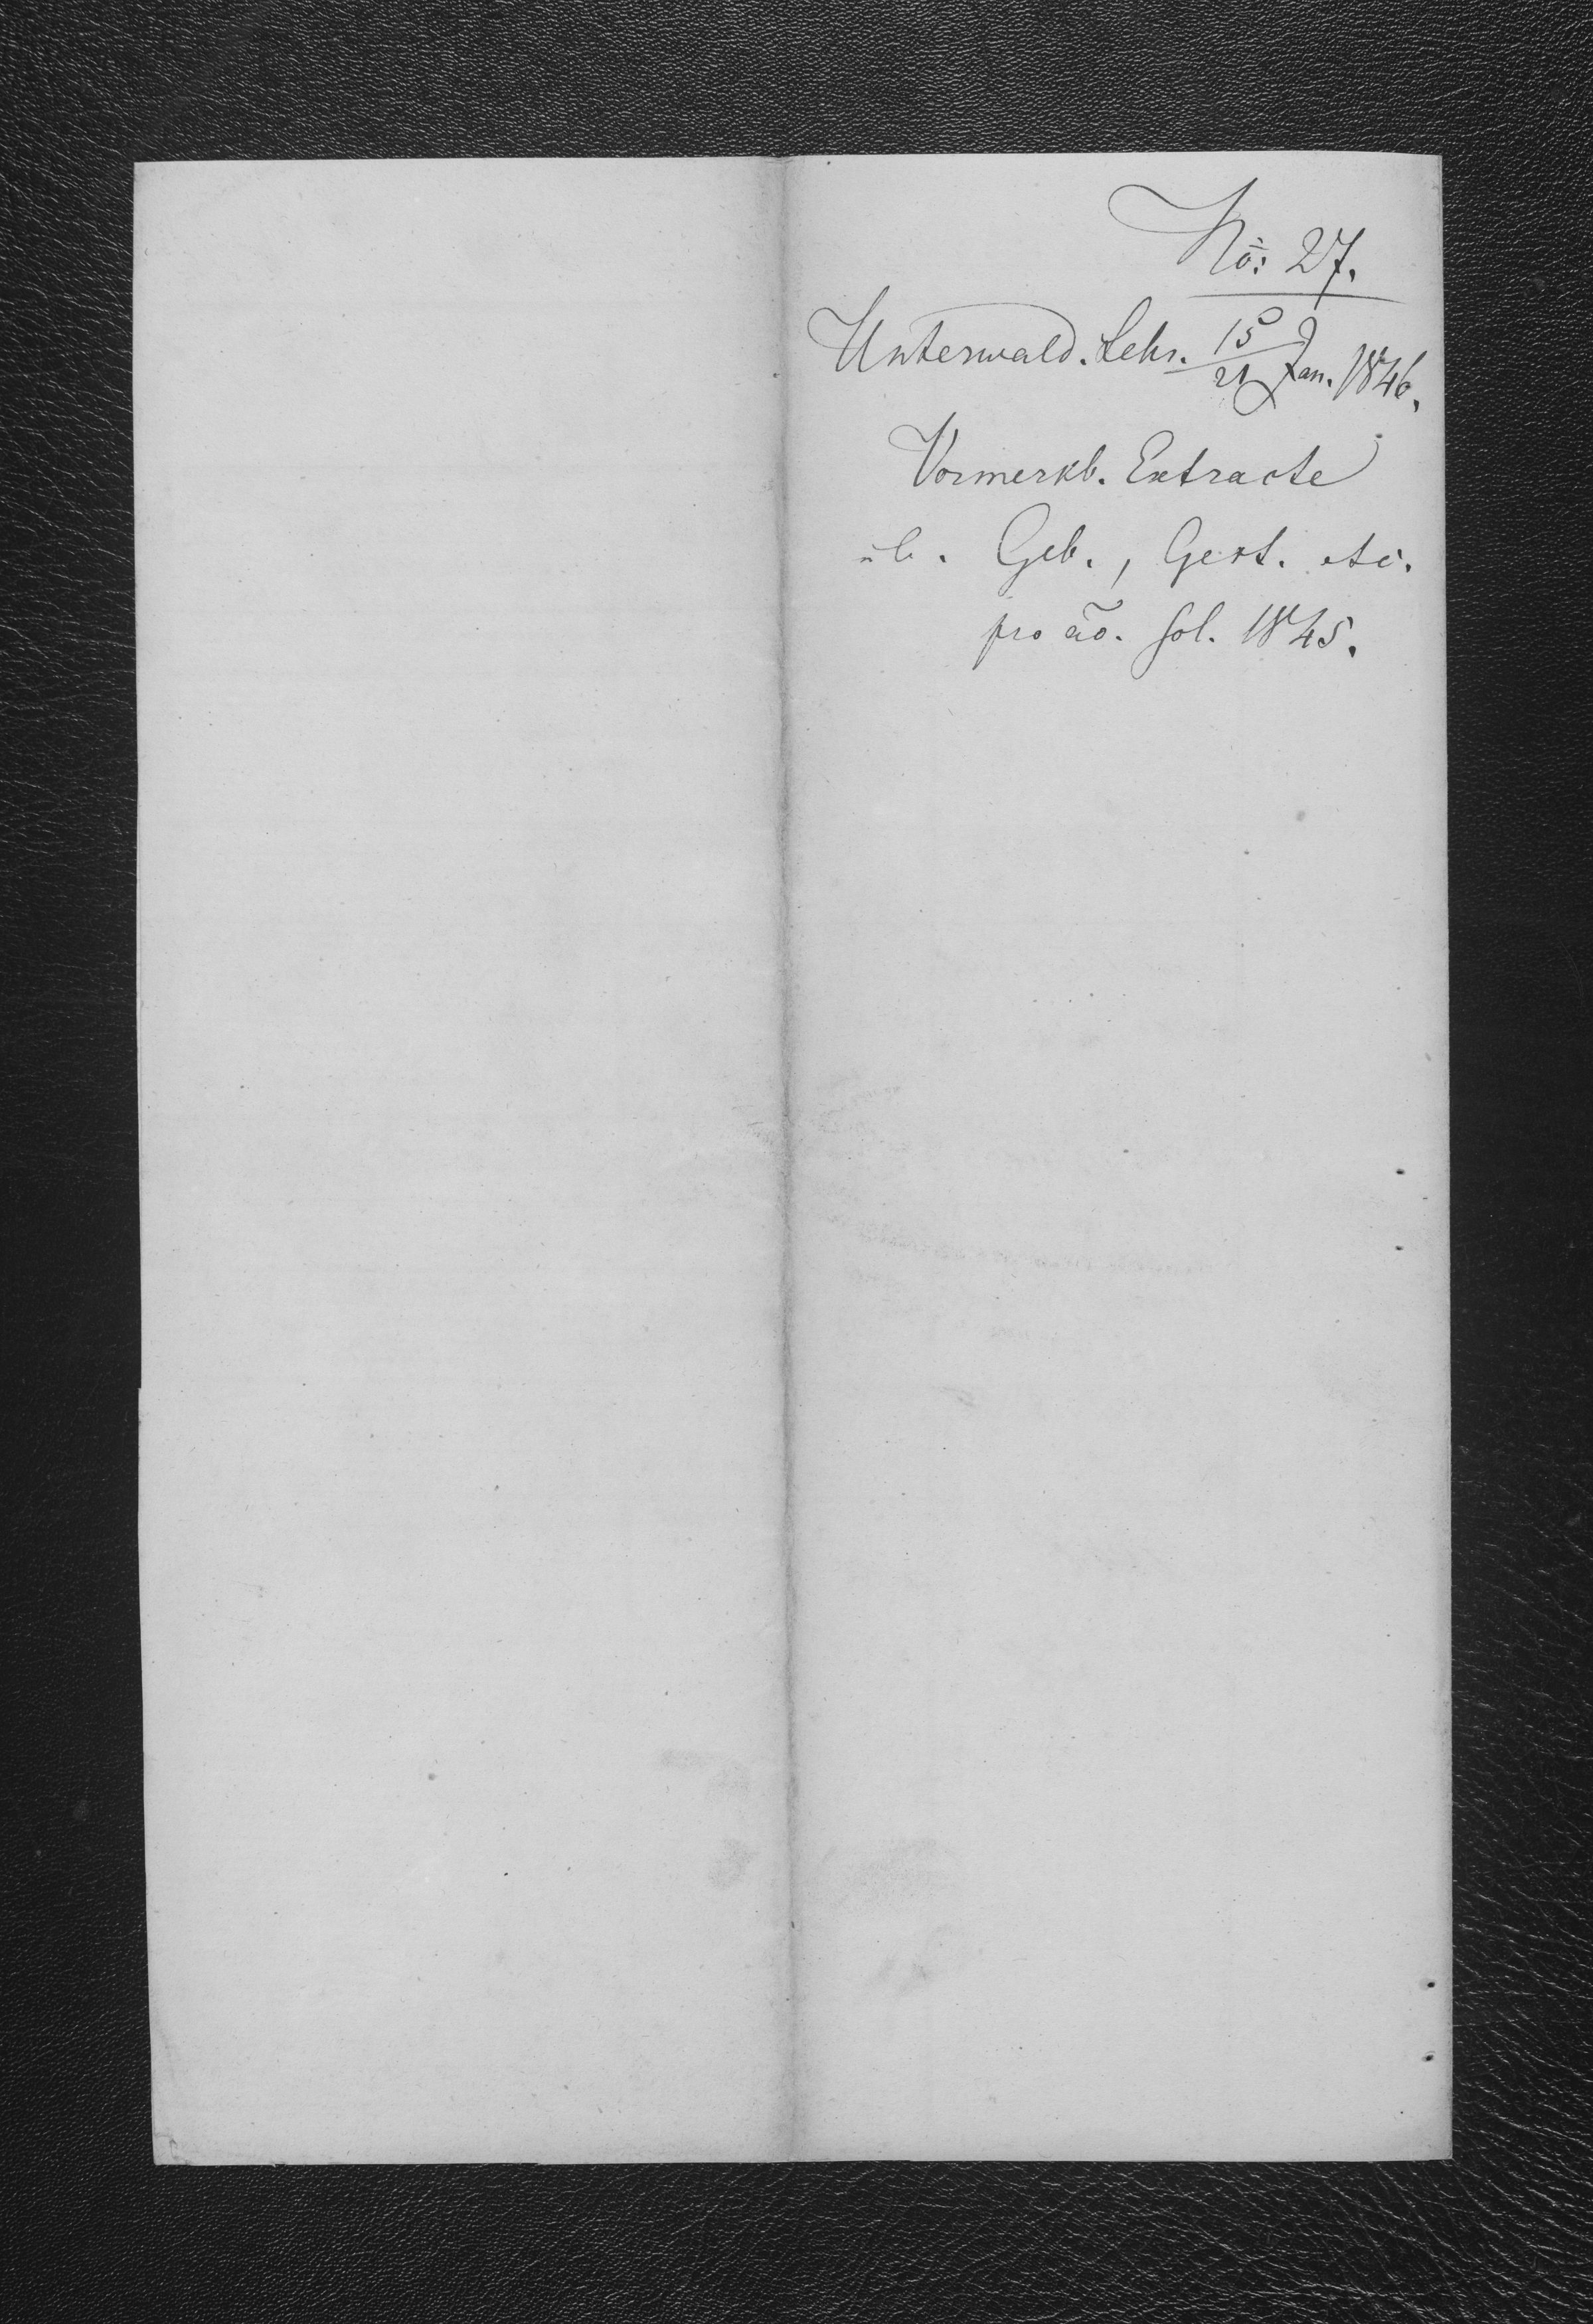 No: 27.
Unterwald. Lehr. 15/21 Jan. 1846.
Vormerkb. Extracte
üb. Geb., Gest. etc.
pro ao. sol. 1845.